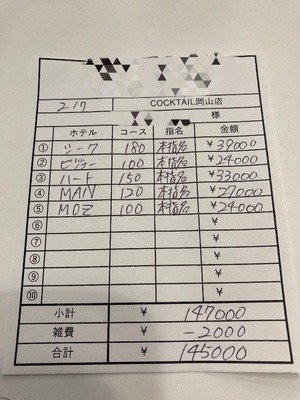 2/7 COCKTAIL岡山店
様
ホテル コース 指名 金額
① シーク 180 本指名 ¥39000
② ビジュー 100 本指名 ¥24000
③ ハート 150 本指名 ¥33000
④ MAN 120 本指名 ¥27000
⑤ MOZ 100 本指名 ¥24000
⑥ ¥
⑦ ¥
⑧ ¥
⑨ ¥
⑩ ¥
小計 ¥ 147000
雑費 ¥ -2000
合計 ¥ 145000